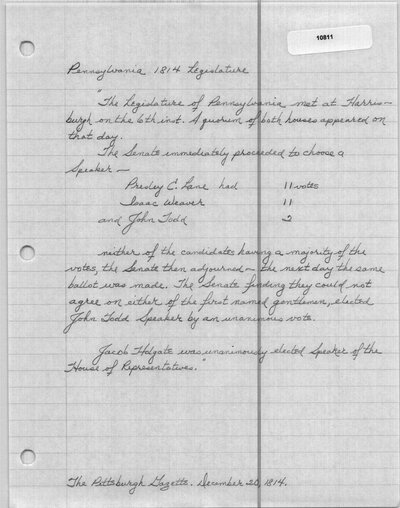 10811
Pennsylvania 1814 Legislature
"The Legislature of Pennsylvania met at Harris-
burgh on the 6th inst. A quorum of both houses appeared on
that day.
The Senate immediately proceeded to choose a
Speaker—
Presley C. Lane had 11 votes
Isaac Weaver 11
and John Todd 2
neither of the candidates having a majority of the
votes, the Senate then adjourned – the next day the same
ballot was made. The Senate finding they could not
agree on either of the first named gentlemen, elected
John Todd Speaker by an unanimous vote.
Jacob Holgate was unanimously elected Speaker of the
House of Representatives."
The Pittsburgh Gazette. December 20, 1814.